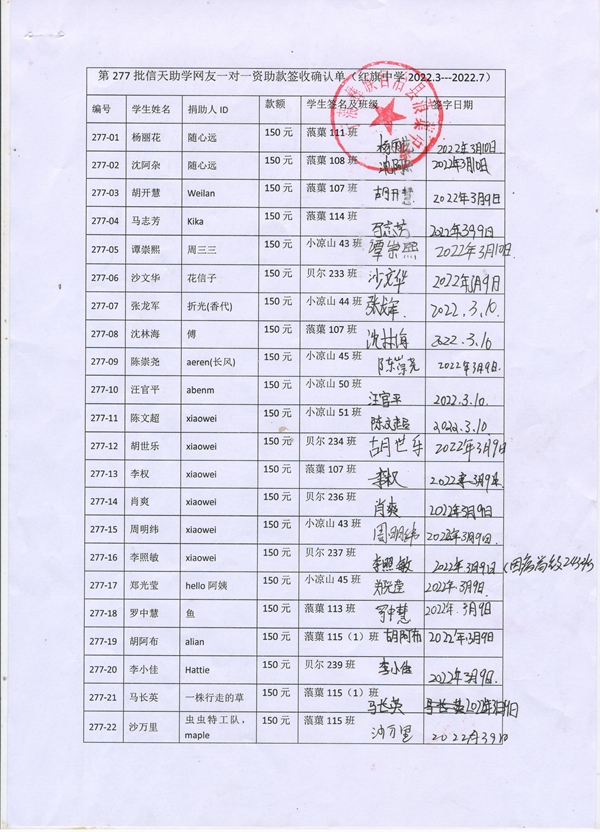 第 277 批信天助学网友一对一资助款签收确认单（红旗中学 2022.3---2022.7）
编号 学生姓名 捐助人 ID 款额 学生签名及班级 签字日期
277-01 杨丽花 随心远 150 元 蒗蕖 111 班 2022年3月10日
277-02 沈阿杂 随心远 150 元 蒗蕖 108 班 2022年3月10日
277-03 胡开慧 Weilan 150 元 蒗蕖 107 班 胡开慧 2022年3月9日
277-04 马志芳 Kika 150 元 蒗蕖 114 班 2022年3月9日
277-05 谭崇熙 周三三 150 元 小凉山 43 班 谭崇熙 2022年3月10日.
277-06 沙文华 花信子 150 元 贝尔 233 班 沙文华 2022年3月9日
277-07 张龙军 折光(香代) 150 元 小凉山 44 班 张龙军. 2022.3.10.
277-08 沈林海 傅 150 元 蒗蕖 107 班 沈林海 2022.3.10
277-09 陈崇尧 aeren(长风) 150 元 小凉山 45 班 陈崇尧 2022年3月9日.
277-10 汪官平 abenm 150 元 小凉山 50 班 汪官平 2022.3.10.
277-11 陈文超 xiaowei 150 元 小凉山 51 班 陈文超 2022.3.10.
277-12 胡世乐 xiaowei 150 元 贝尔 234 班 胡世乐 2022年3月9日
277-13 李权 xiaowei 150 元 蒗蕖 107 班 李权 2022年3月9日.
277-14 肖爽 xiaowei 150 元 贝尔 236 班 肖爽 2022年3月9日
277-15 周明纬 xiaowei 150 元 小凉山 43 班 周明纬 2022年3月9日.
277-16 李照敏 xiaowei 150 元 贝尔 237 班 李照敏 2022年3月9日
277-17 郑光莹 hello 阿姨 150 元 小凉山 45 班 郑光莹 2022年3月9日.
277-18 罗中慧 鱼 150 元 蒗蕖 113 班 罗中慧 2022年3月9日
277-19 胡阿布 alian 150 元 蒗蕖 115（1）班 胡阿布 2022年3月9日
277-20 李小佳 Hattie 150 元 贝尔 239 班 李小佳 2022年3月9日.
277-21 马长英 一株行走的草 150 元 蒗蕖 115（1）班 马长英 2022年3月9日
277-22 沙万里 虫虫特工队， 150 元 蒗蕖 115 班 沙万里 2022年3月9日
maple